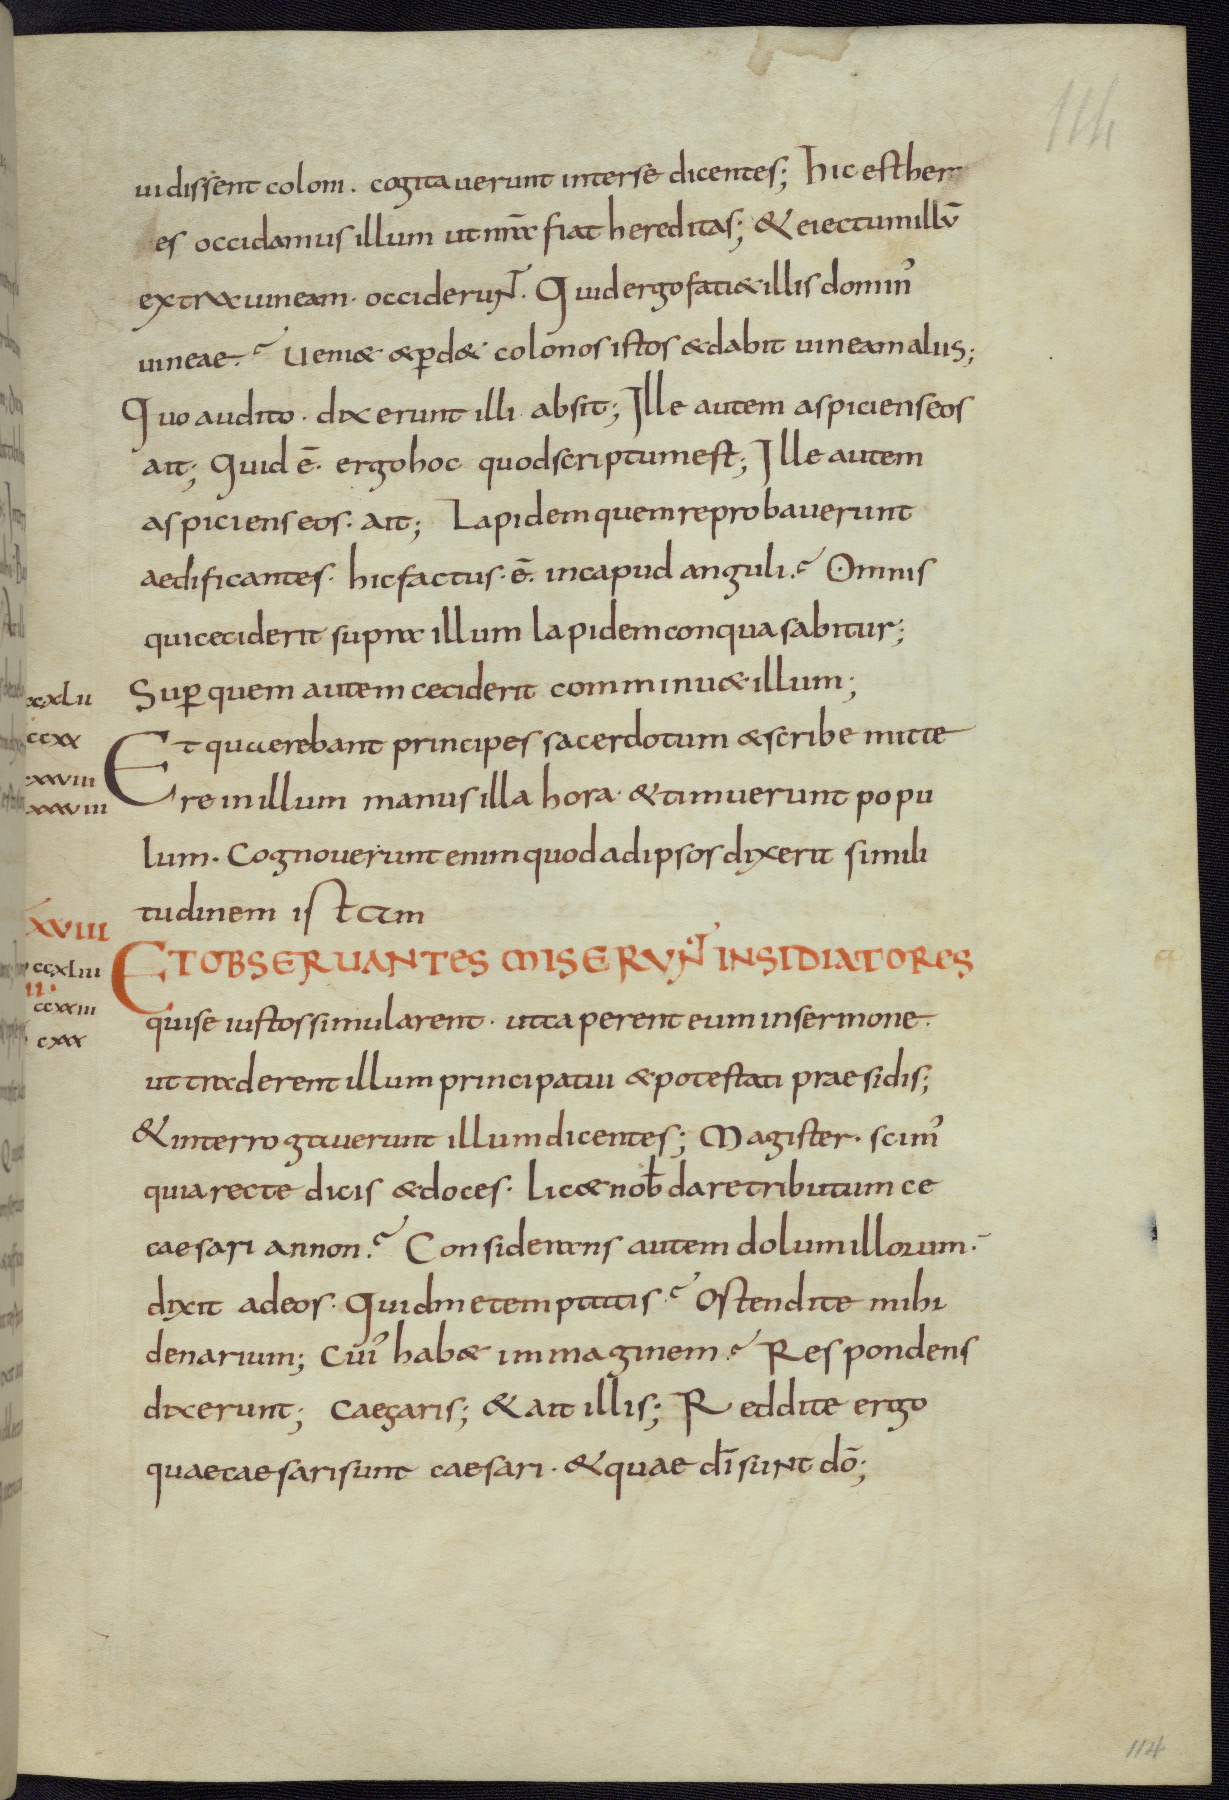 114
uidissent coloni. cogitauerunt interse dicentes; hic esther
es occidamus illum ut nr̄a fiat hereditas; & eiectum illū
extra uineam. occiderunt. Quid ergo faci&illis domin'
uineae? Ueni& &ꝑd& colonos istos &dabit uineam aliis;
Quo audito. dixerunt illi absit; Ille autem aspiciens eos
ait; Quid ē. ergo hoc quod scriptum est; Ille autem
aspiciens eos. ait; Lapidem quem reprobauerunt
aedificantes. hic factus. ē. in capud anguli? Omnis
qui ceciderit supra illum lapidem conquasabitur;
Suꝑ quem autem ceciderit comminu& illum;
Et quaerebant principes sacerdotum &scribe mitte
re in illum manus illa hora. & timuerunt popu
lum. Cognouerunt enim quod ad ipsos dixerit simili
tudinem istam
ET OBSERUANTES MISERUNT INSIDIATORES
qui se iustos simularent. ut caperent eum in sermone.
ut traderent illum principatui &potestati praesidis;
& interrogauerunt illum dicentes; Magister. scim'
quia recte dicis &doces. Lic& nob̄ dare tributum ce
caesari annon? Considerans autem dolum illorum.
dixit ad eos. Quid me temptatis? Ostendite mihi
denarium; Cui' hab& immaginem? Respondens
dixerunt; Caesaris; & ait illis; Reddite ergo
quae caesaris sunt caesari. & quae dī sunt dō;
ccxx
XVIII
ccxliii
II.
ccxxiii
cxxx
114